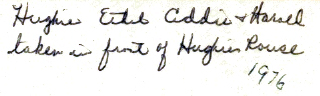 Hughie Ethel Addie + Harold
taken in front of Hughies House
1976